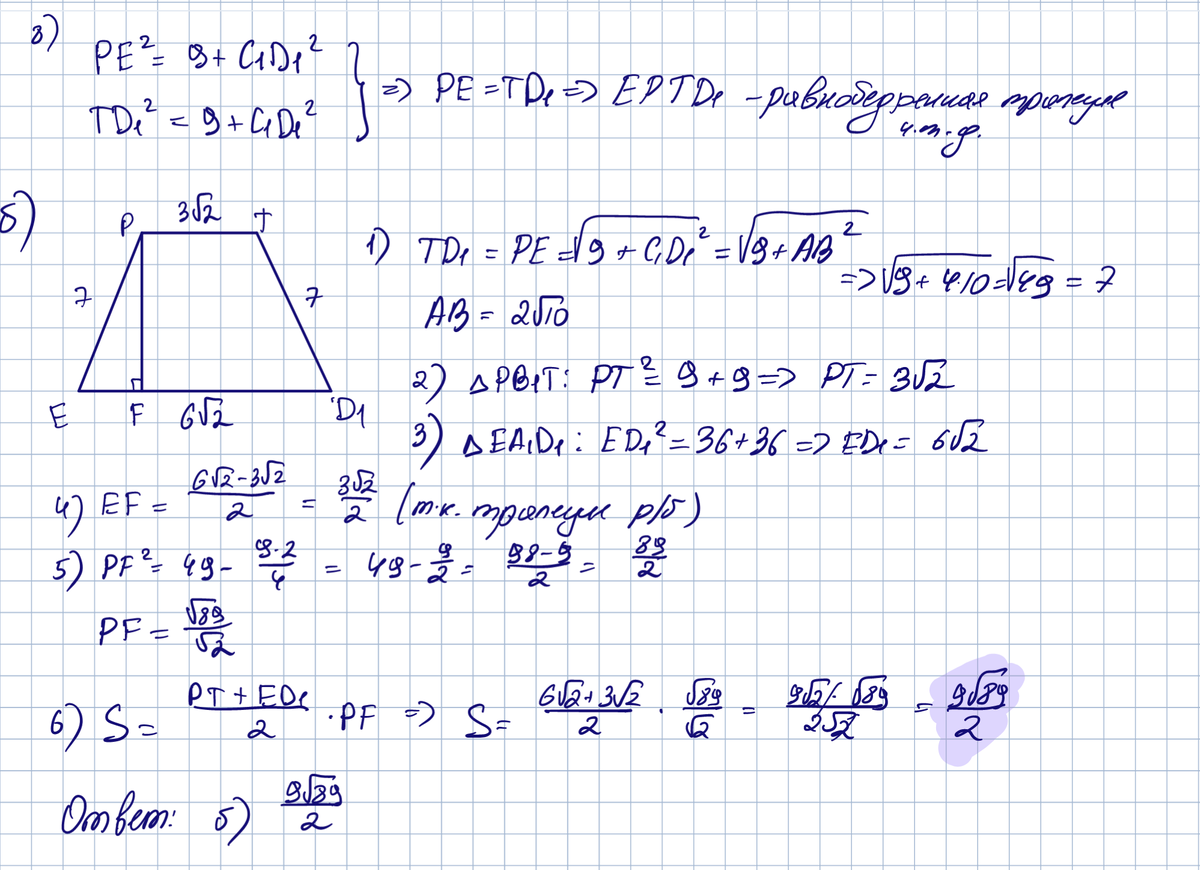 в) PE² = 9 + C₁D₁²
TD₁² = 9 + C₁D₁² } => PE = TD₁ => EPTD₁ - равнобедренная трапеция
ч.т.д.
б) P 3√2 T
7 7
E F 6√2 D₁
1) TD₁ = PE = √(9 + C₁D₁²) = √(9 + AB²) => √(9 + 4·10) = √49 = 7
AB = 2√10
2) △PB₁T: PT² = 9 + 9 => PT = 3√2
3) △EA₁D₁: ED₁² = 36 + 36 => ED₁ = 6√2
4) EF = (6√2 - 3√2)/2 = 3√2/2 (т.к. трапеция р/б)
5) PF² = 49 - (9·2)/4 = 49 - 9/2 = (98 - 9)/2 = 89/2
PF = √89/√2
6) S = (PT + ED₁)/2 · PF => S = (6√2 + 3√2)/2 · √89/√2 = (9√2 · √89)/(2√2) = 9√89/2
Ответ: б) 9√89/2